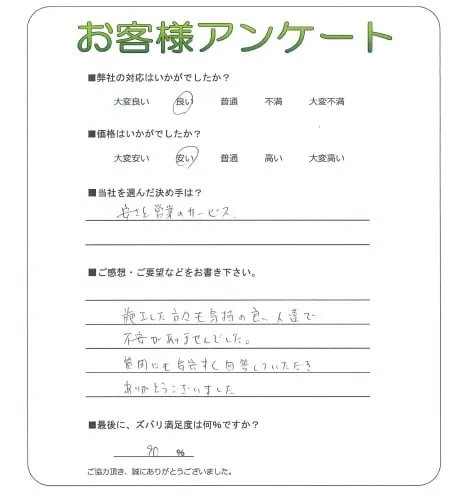 お客様アンケート
■弊社の対応はいかがでしたか？
大変良い 良い 普通 不満 大変不満
■価格はいかがでしたか？
大変安い 安い 普通 高い 大変高い
■当社を選んだ決め手は？
安さと営業のサービス
■ご感想・ご要望などをお書き下さい。
施工した方々も気持の良い人達で
不安がありませんでした。
質問にも気安すく回答していただき
ありがとうございました
■最後に、ズバリ満足度は何％ですか？
90 ％
ご協力頂き、誠にありがとうございました。